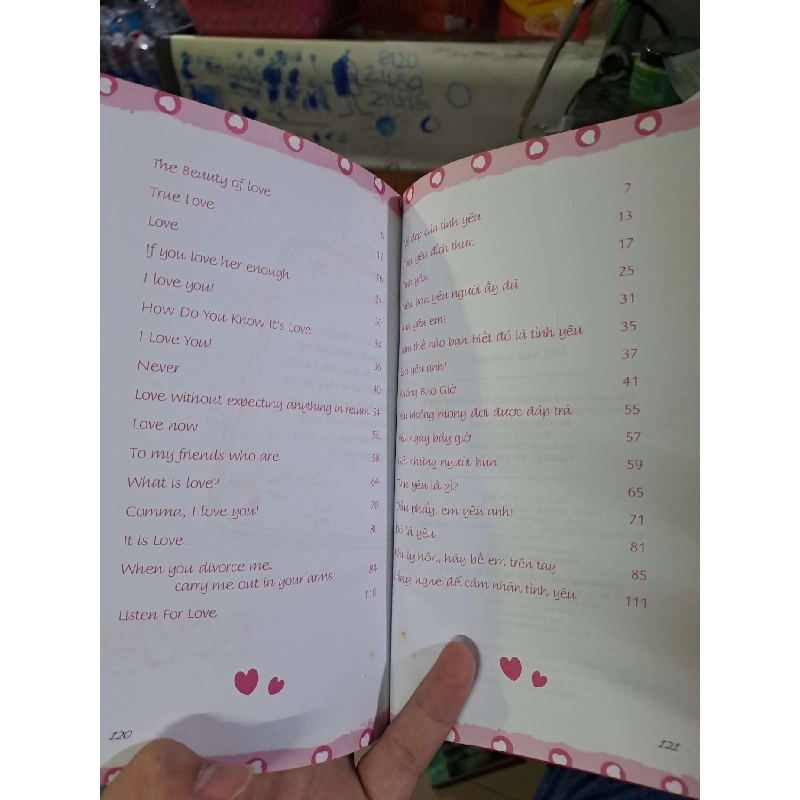 The Beauty of love
True Love
Love
If you love her enough
I love you!
How Do You Know It's Love
I Love You!
Never
Love without expecting anything in return 54
Love now 56
To my friends who are 58
What is love? 64
Comma, I love you! 70
It is Love 80
When you divorce me, 84
carry me out in your arms
110
Listen For Love
120
7
đẹp của tình yêu 13
yêu đích thực 17
yêu 25
bạn yêu người ấy đủ 31
yêu em! 35
thế nào bạn biết đó là tình yêu 37
yêu anh! 41
Không Bao Giờ 55
không mong đợi được đáp trả 57
ngay bây giờ 59
những người bạn 65
yêu là gì? 71
Dấu phẩy, em yêu anh! 81
Đó là yêu... 85
ly hôn, hãy bế em trên tay 111
nghe để cảm nhận tình yêu
121